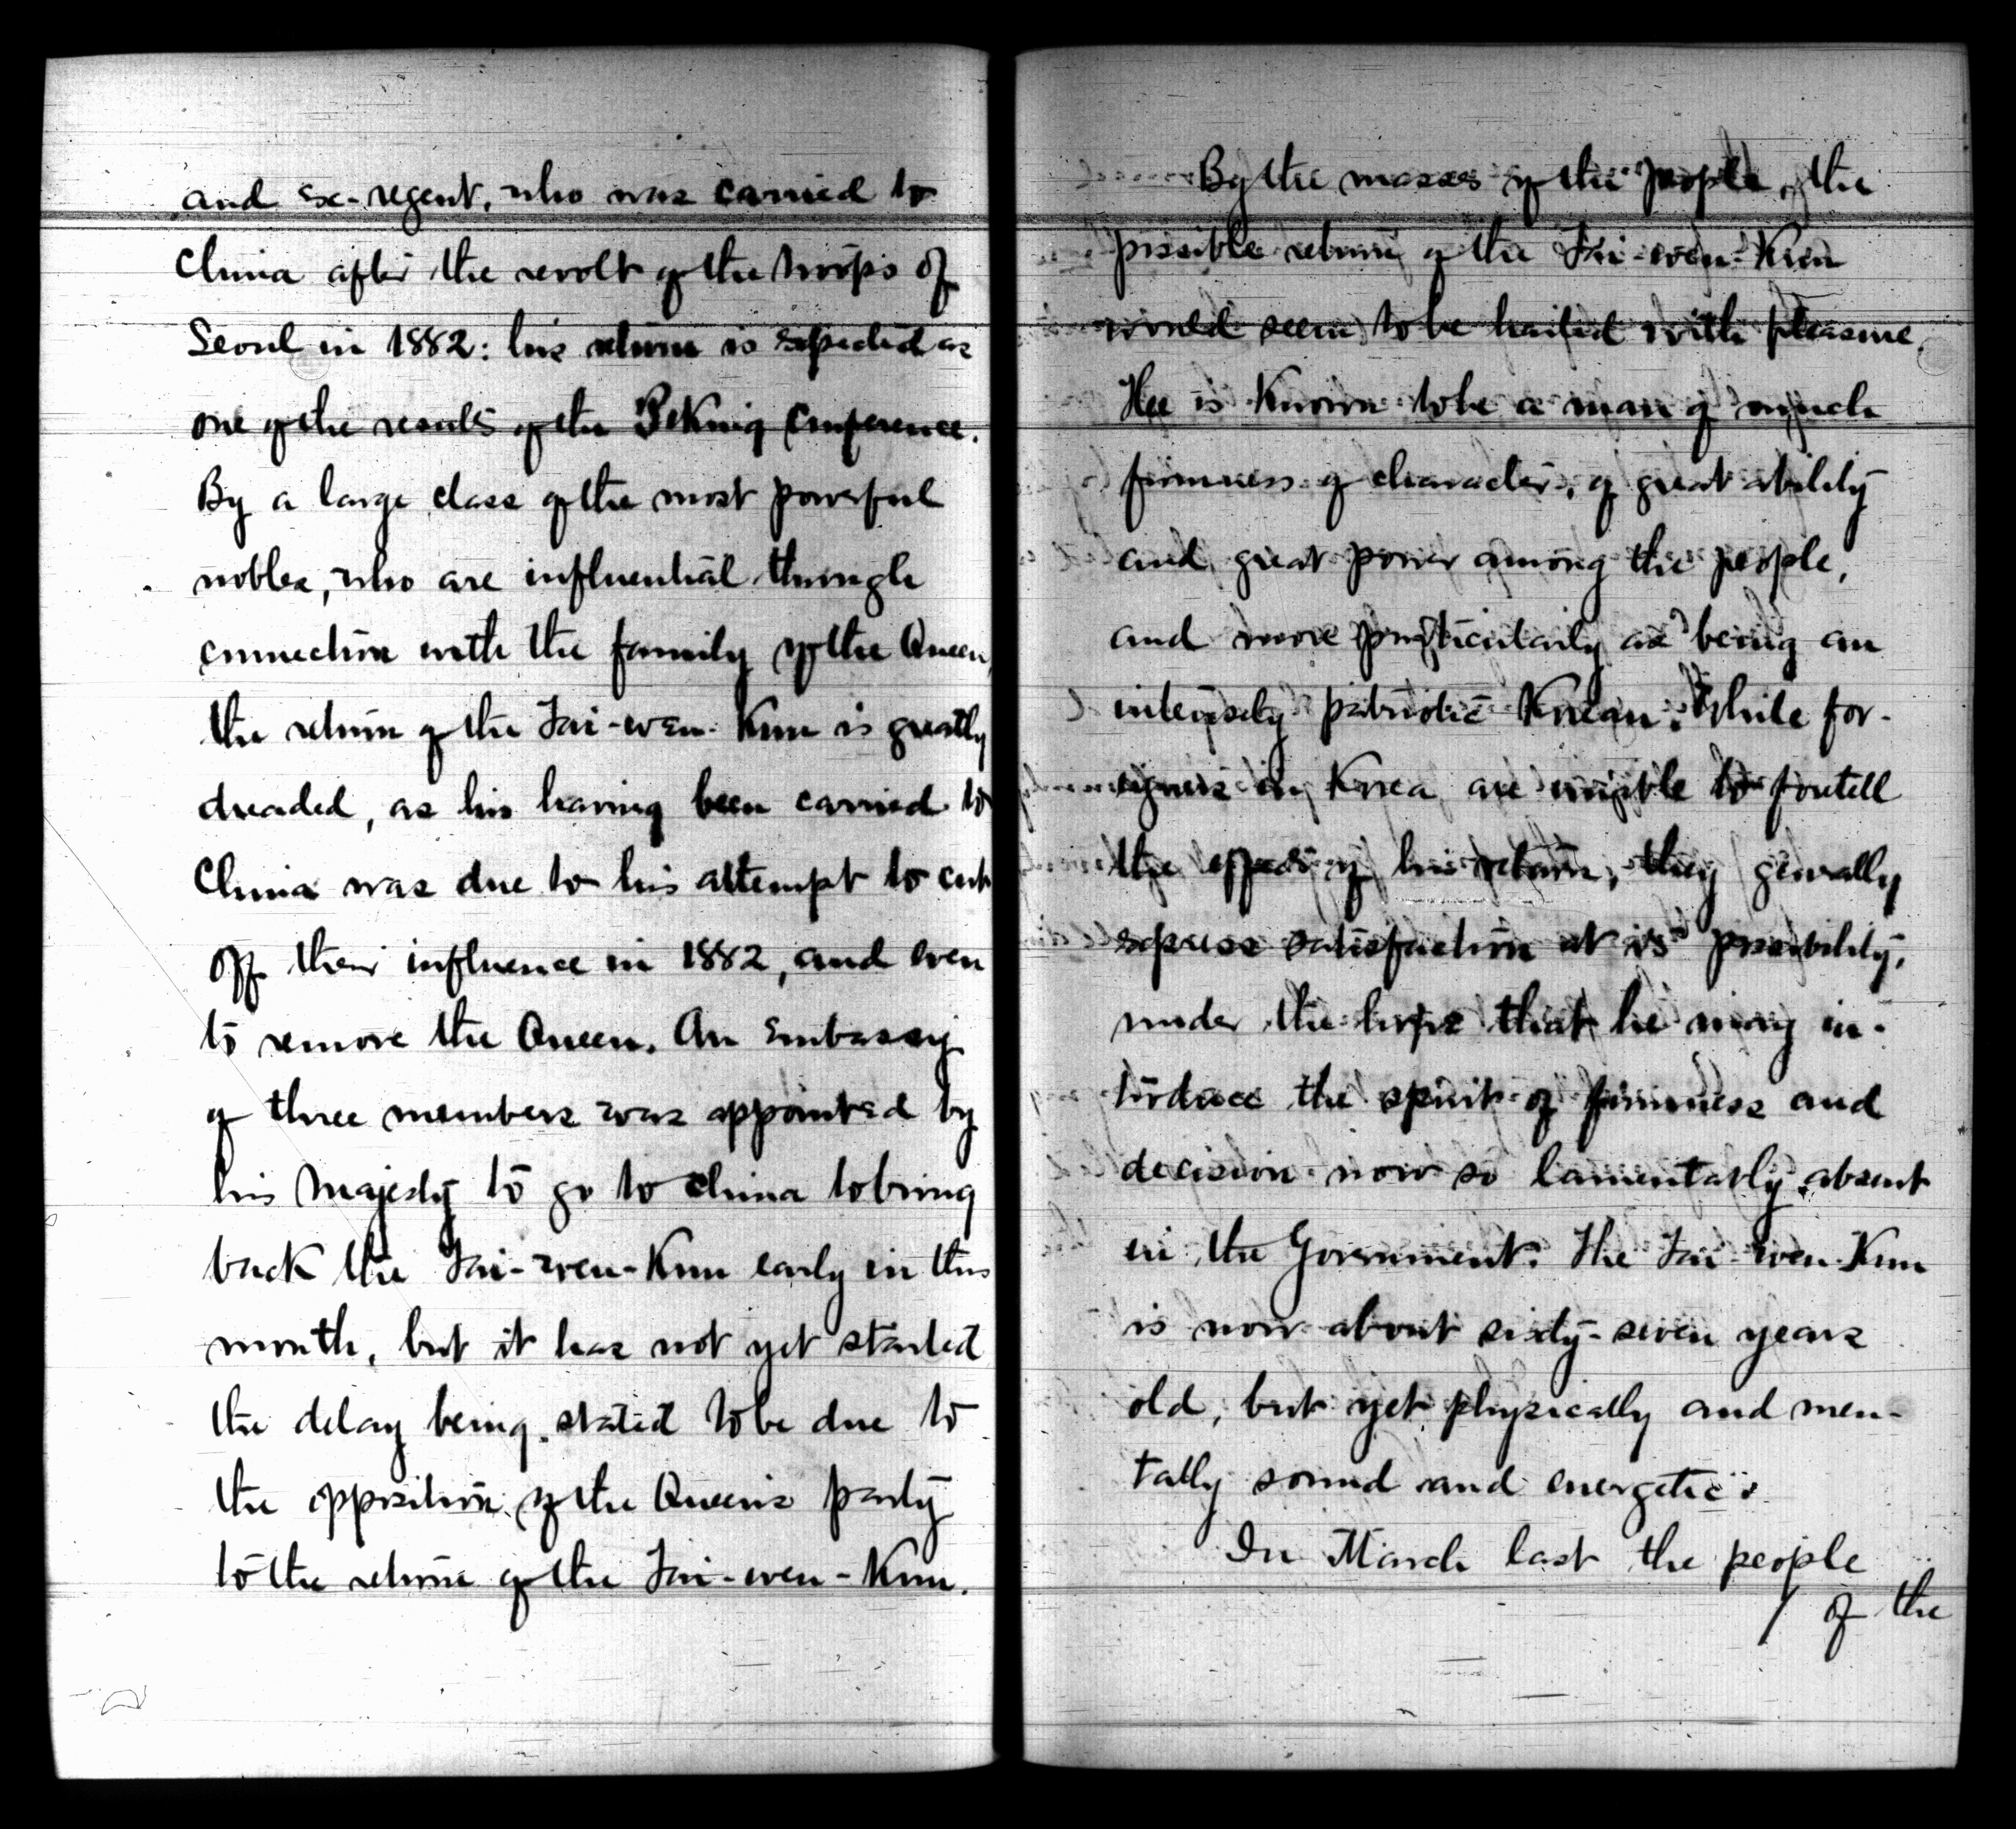 and ex-regent, who was carried to
China after the revolt of the troops of
Seoul in 1882: his return is expected as
one of the results of the Peking Conference.
By a large class of the most powerful
nobles, who are influential through
connection with the family of the Queen,
the return of the Tai-wen-Kun is greatly
dreaded, as his having been carried to
China was due to his attempt to cut
off their influence in 1882, and even
to remove the Queen. An Embassy
of three members was appointed by
his Majesty to go to China to bring
back the Tai-wen-Kun early in this
month, but it has not yet started
the delay being stated to be due to
the opposition of the Queen's party
to the return of the Tai-wen-Kun.
By the masses of the people, the
possible return of the Tai-wen-Kun
would seem to be hailed with pleasure.
He is known to be a man of much
firmness of character, of great ability
and great power among the people,
and more particularly as being an
intensely patriotic Korean. While for-
eigners in Korea are unable to foretell
the effect of his return, they generally
express satisfaction at is possibility,
under the hope that he may in-
troduce the spirit of firmness and
decision now so lamentably absent
in the Government. The Tai-wen-Kun
is now about sixty-seven years
old, but yet physically and men-
tally sound and energetic.
In March last the people
of the